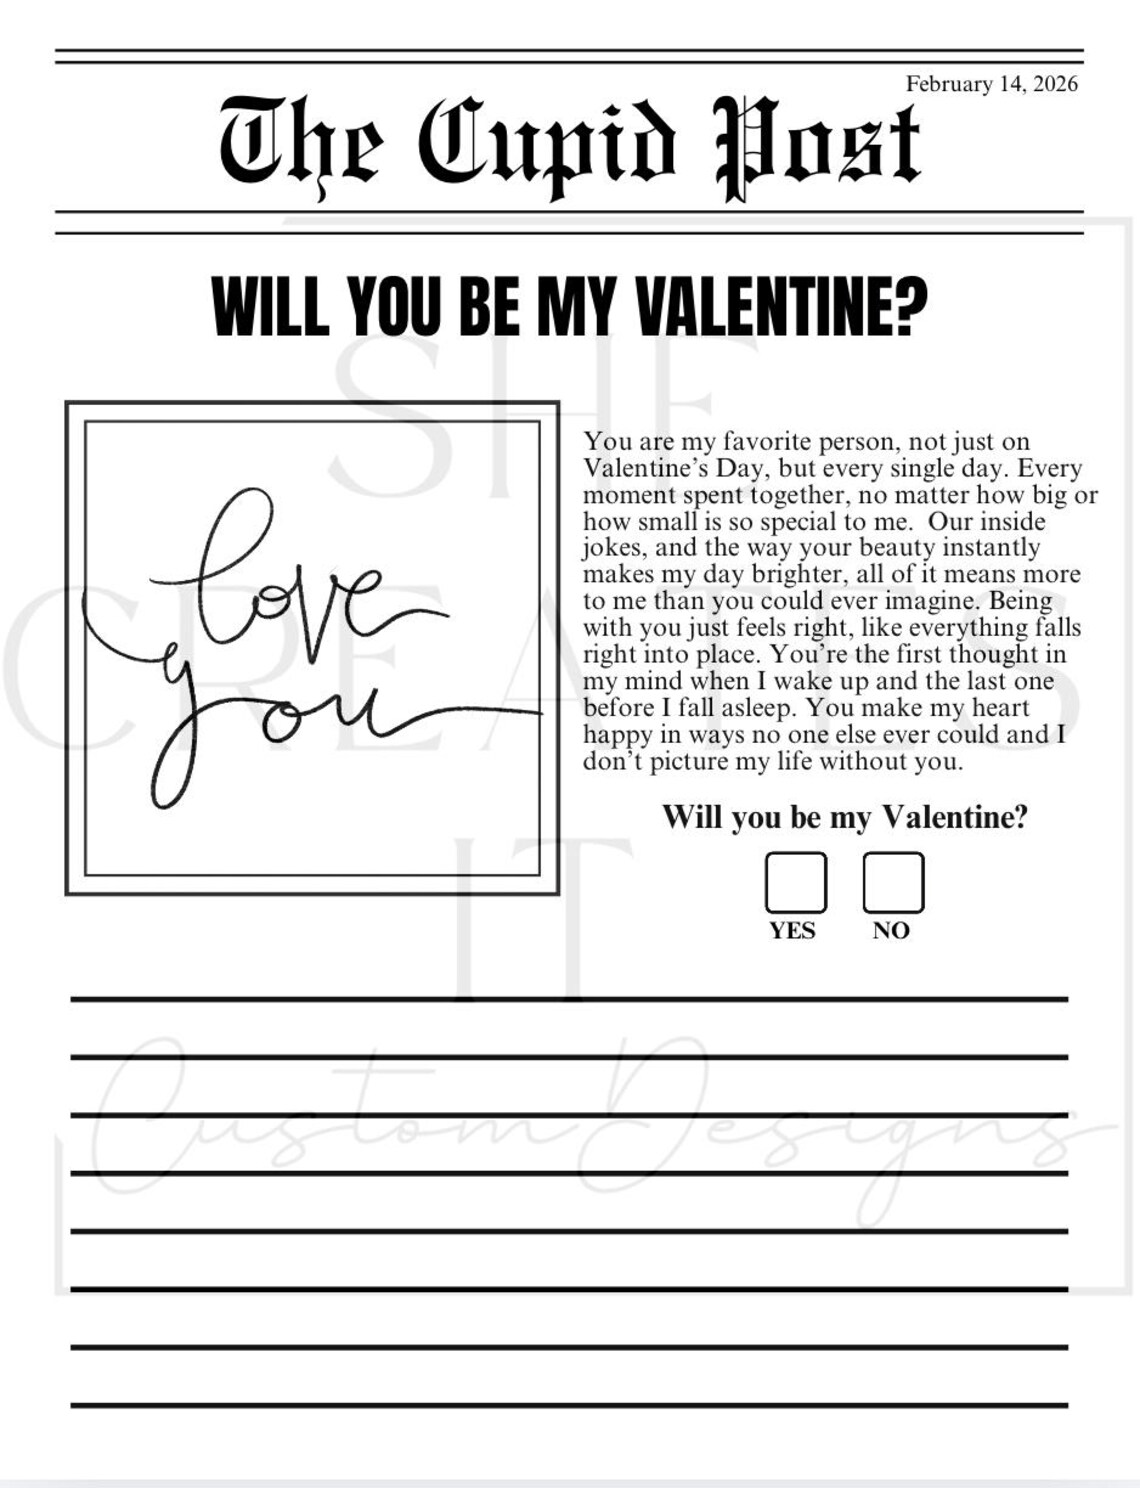 February 14, 2026
The Cupid Post
WILL YOU BE MY VALENTINE?
love
you
You are my favorite person, not just on
Valentine’s Day, but every single day. Every
moment spent together, no matter how big or
how small is so special to me.  Our inside
jokes, and the way your beauty instantly
makes my day brighter, all of it means more
to me than you could ever imagine. Being
with you just feels right, like everything falls
right into place. You’re the first thought in
my mind when I wake up and the last one
before I fall asleep. You make my heart
happy in ways no one else ever could and I
don’t picture my life without you.
Will you be my Valentine?
YES NO
SHE
CREATES
IT
Custom Designs